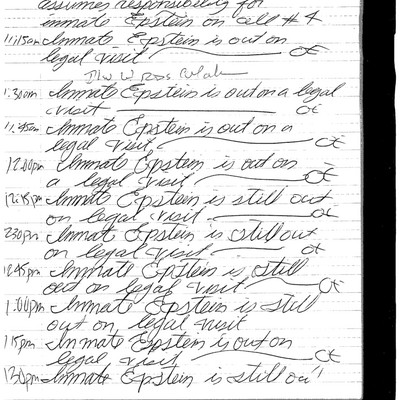 assumes responsibility for
inmate Epstein on cell #4
11:15am Inmate Epstein is out on
legal visit CE
1:30am Inmate Epstein is out on a legal
visit CE
11:45am Inmate Epstein is out on a
legal visit. CE
12:00pm Inmate Epstein is out on
a legal visit CE
12:15pm Inmate Epstein is still out
on legal visit CE
230pm Inmate Epstein is still out
on legal visit CE
12:45pm Inmate Epstein is still
out on legal visit CE
1:00pm Inmate Epstein is still
out on legal visit
115pm Inmate Epstein is out on
legal visit CE
130pm Inmate Epstein is still out